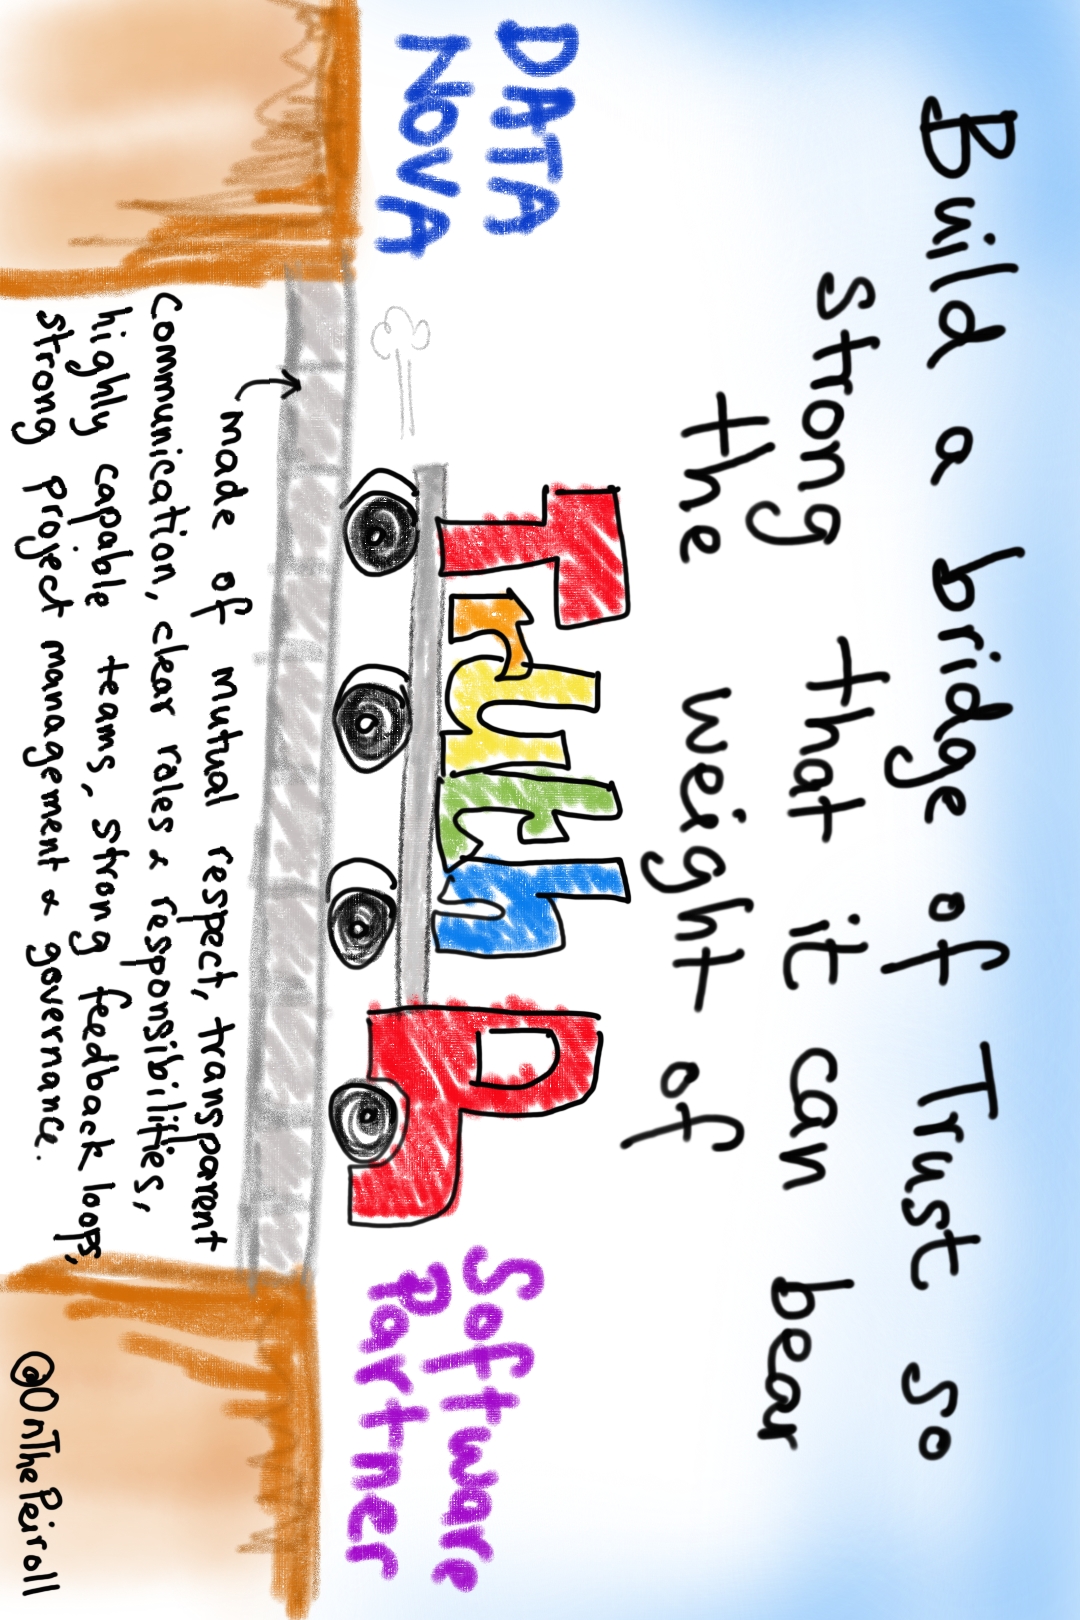 Build a bridge of Trust so
strong that it can bear
the weight of
DATA
NOVA
Truth
Software
Partner
made of mutual respect, transparent
Communication, clear roles & responsibilities,
highly capable teams, strong feedback loops,
strong project management & governance.
@OnThePeiroll